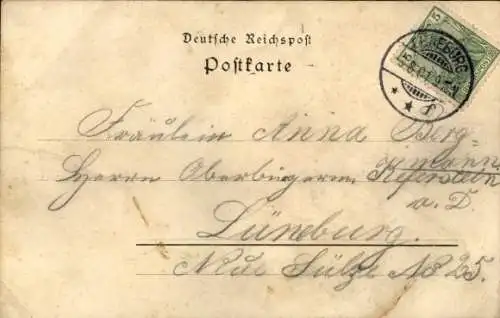 Deutsche Reichspost
Postkarte
5
LÜNEBURG
Fräulein Anna Berg-
mann
Herrn Oberbürgerm. Keferstein
a. D.
Lüneburg.
Neue Sülze No 25.